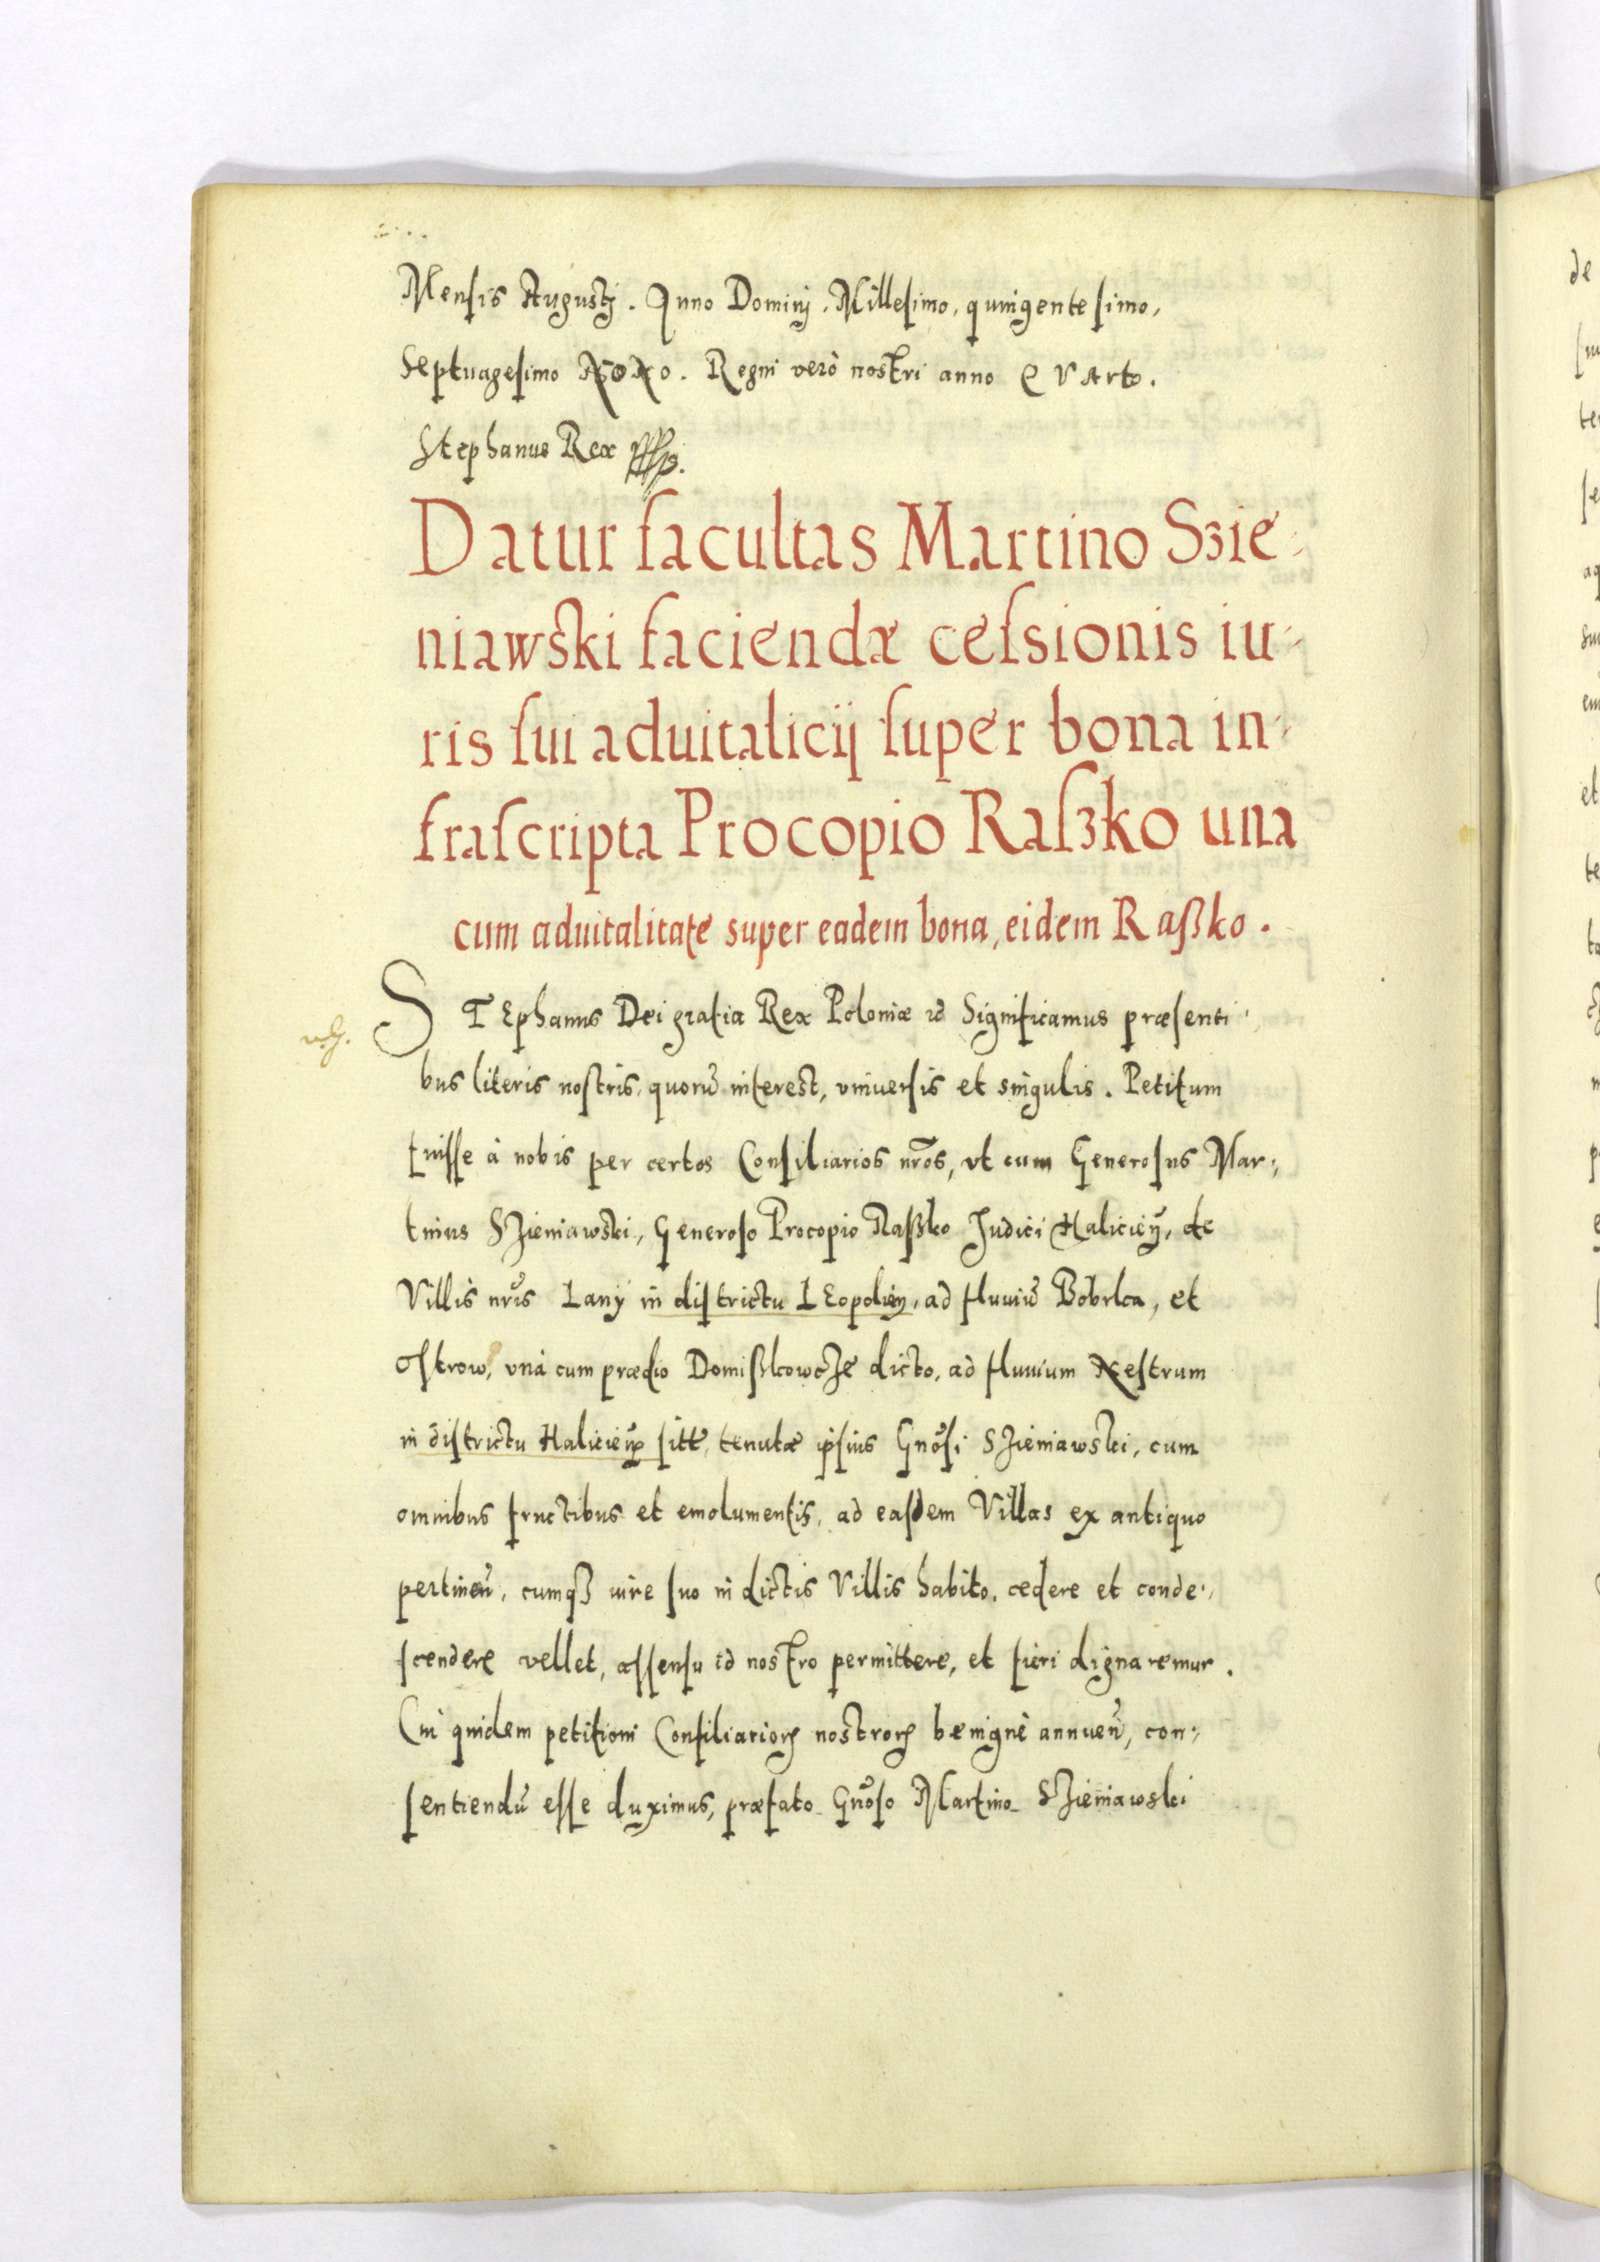 Mensis Augustj. Anno Dominj. Millesimo, quingentesimo,
Septuagesimo NoNo. Regni verò nostri anno QVArto.
Stephanus Rex
Datur facultas Martino Szie-
niawski faciendæ cessionis iu-
ris sui aduitalicij super bona in-
frascripta Procopio Raszko una
cum aduitalitate super eadem bona, eidem Raßko.
STEphanus Dei gratia Rex Poloniæ Significamus præsenti-
bus literis nostris, quorū interest, vniuersis et singulis. Petitum
fuisse à nobis per certos Consiliarios nr̃os, vt cum Generosus Mar-
tinus Szieniawski, Generoso Procopio Raßko Judici Halicień, de
Villis nr̃is Lany in districtu LEopolień, ad fluuiū Bobrka, et
Ostrow, vnà cum prædio Domißkowcze dicto, ad fluuium Nestrum
in districtu Halicień sitt, tenutæ ipsius Gnõsi Szieniawski, cum
omnibus fructibus et emolumentis, ad easdem Villas ex antiquo
pertineñ, cumqꝫ iure suo in dictis Villis habito, cedere et conde-
scendere vellet, assensu id nostro permittere, et fieri dignaremur.
Cui quidem petitioni Consiliarioꝝ nostroꝝ benignè annueñ, con-
sentiendū esse duximus, præfato Gnõso Martino Szieniawski